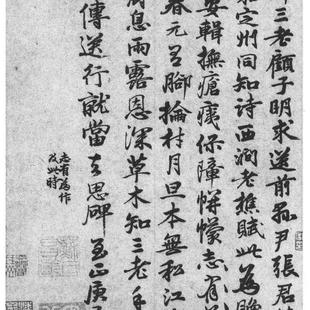 三老顧子明求送前孤尹張君
定州同知詩西澗老樵賦此為
安輯撫瘡痍保障帡幪志有
春元呂脚掄村月旦本無私江
息雨露恩深草木知三老
傳送行就當去思碑 至正庚
志有為作
及此時